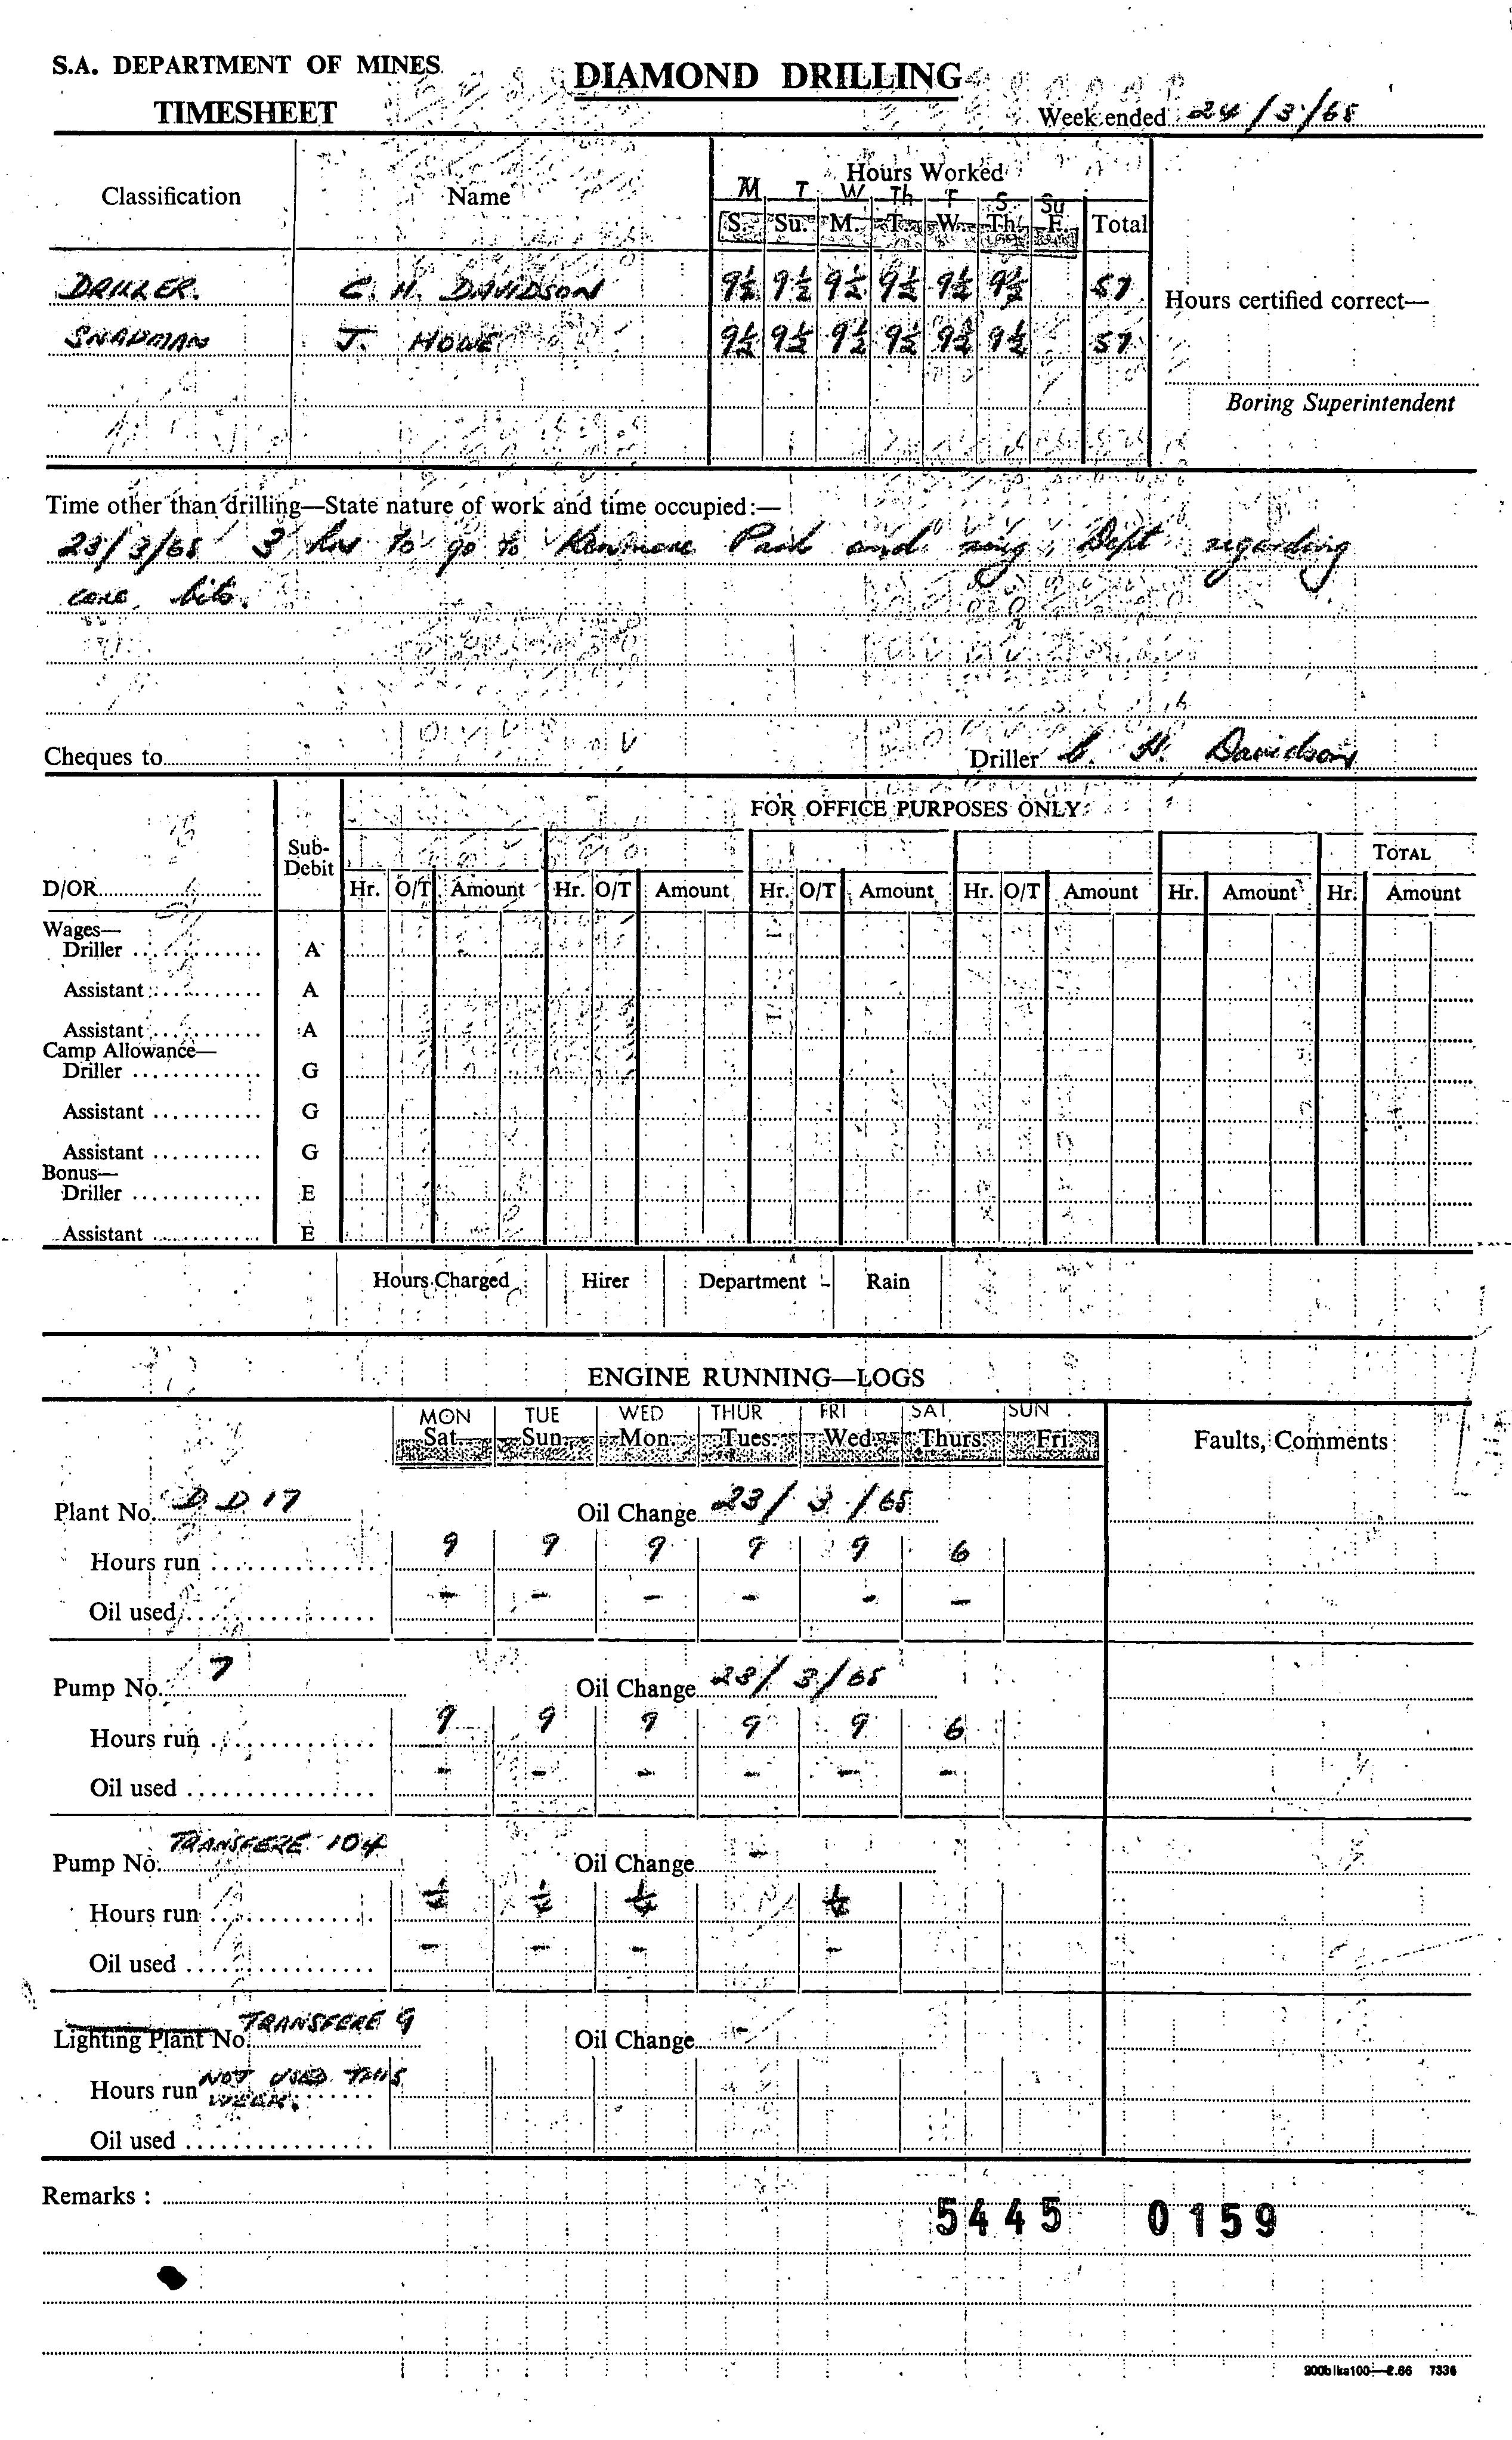 S.A. DEPARTMENT OF MINES
DIAMOND DRILLING
TIMESHEET
Week ended 24/3/68
Classification Name Hours Worked
M T W Th F S Su
S. Su. M. T. W. Th. F. Total
DRILLER. C. H. DAVIDSON 9½ 9½ 9½ 9½ 9½ 9½ 57
Hours certified correct—
J. HOWE 9½ 9½ 9½ 9½ 9½ 9½ 57
Boring Superintendent
Time other than drilling—State nature of work and time occupied:—
23/3/68 3 hrs to go to Kenmore Park and ring Dept regarding
core bits.
Cheques to
Driller C. H. Davidson
FOR OFFICE PURPOSES ONLY
Sub-Debit
TOTAL
D/OR Hr. O/T Amount Hr. O/T Amount Hr. O/T Amount Hr. O/T Amount Hr. Amount Hr. Amount
Wages—
Driller A
Assistant A
Assistant A
Camp Allowance—
Driller G
Assistant G
Assistant G
Bonus—
Driller E
Assistant E
Hours Charged Hirer Department Rain
ENGINE RUNNING—LOGS
MON TUE WED THUR FRI SAT SUN
Sat. Sun. Mon. Tues. Wed. Thurs. Fri. Faults, Comments
Plant No. DD17 Oil Change 23/3/68
Hours run 9 9 9 9 9 6
Oil used - - - - - -
Pump No. 7 Oil Change 23/3/68
Hours run 9 9 9 9 9 6
Oil used - - - - - -
Pump No. TRANSFERE 104 Oil Change -
Hours run ½ ½ ½ ½
Oil used - - - -
Lighting Plant No. TRANSFERE 9 Oil Change -
Hours run NOT USED THIS
WEEK.
Oil used
Remarks :
5445 0159
900blks100—2.66 7336